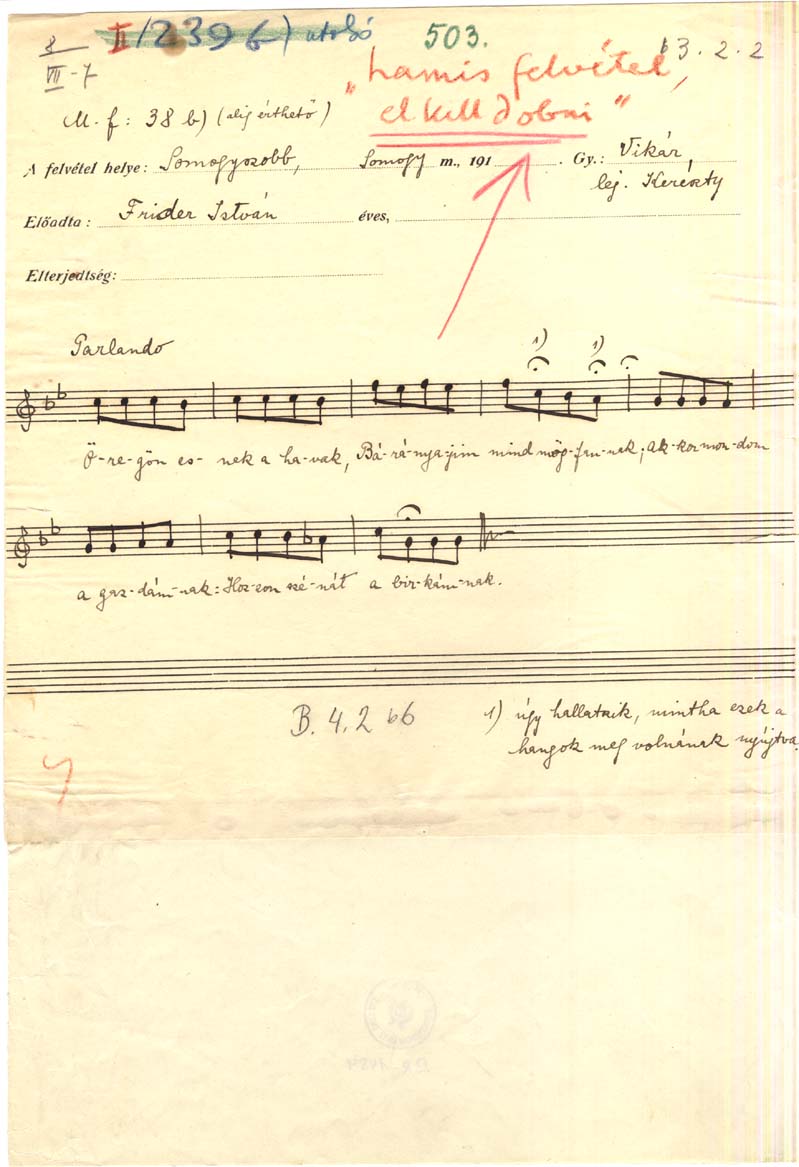 8
VII-7
II/2396) utolsó
503.
b3.2.2
"hamis felvétel,
el kell dobni"
M. f: 38 b) (alig érthető)
A felvétel helye: Somogyszobb, Somogy m., 191 . Gy.: Vikár,
lej. Kereszty
Előadta: Frider István éves,
Elterjedtség:
Parlando
1) 1)
Ö-re-gön es-nek a ha-vak, Bá-rá-nya-jim mind mög-fan-nak; Ak-kor mon-dom
a gaz-dám-nak: Hoz-zon szé-nát a bir-kám-nak.
B. 4. 2 bb
1) úgy hallatszik, mintha ezek a
hangok meg volnának nyújtva.